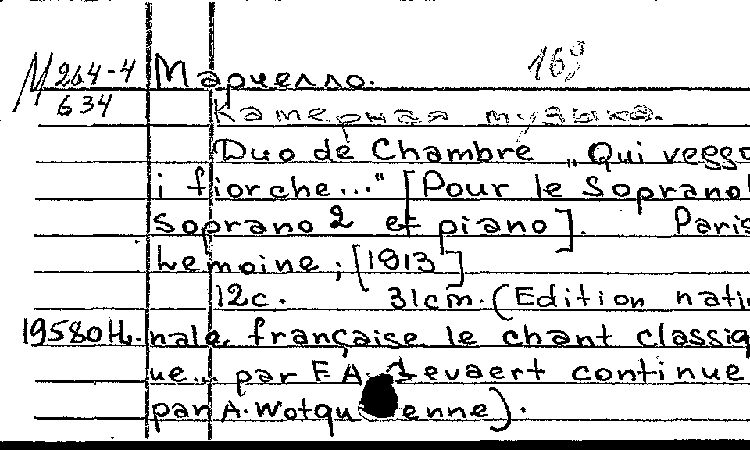 169
М 264-4 Марчелло.
634 Камерная музыка.
Duo de Chambre „Qui veggo
i fiorche..." [Pour le Soprano1
Soprano 2 et piano]. Paris
Lemoine; [1913]
12c. 31cm. (Edition nati
19580Н. nale française le chant classiq
ue... par F.A. Gevaert continue
par A. Wotqu enne).